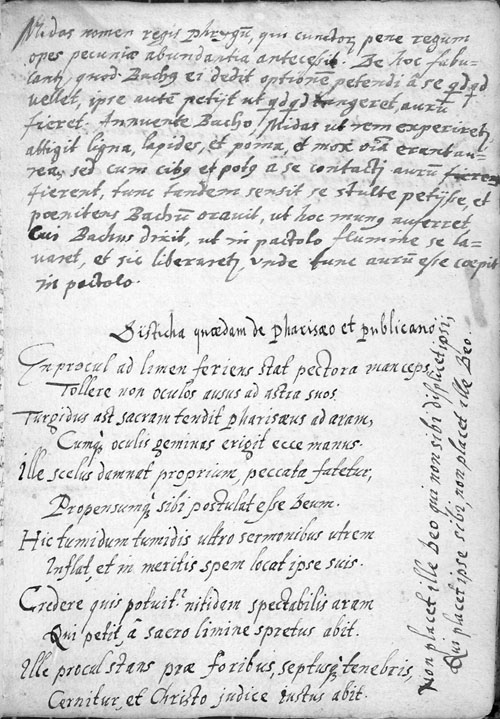 Midas nomen regis phrygũ, qui cunctos pene regum
opes pecuniæ abundantia antecessit. De hoc fabu-
lantʒ, quod Bachꝯ ei dedit optionẽ petendi â se qdqd
vellet, ipse autẽ petijt ut qdqd tangeret, aurũ
fieret. Annuente Bacho, Midas ut rem experiretʒ
attigit ligna, lapides, et poma, et mox oĩa erant au-
rea, sed cum cibꝯ et potꝯ a se contacti aurũ
fierent, tunc tandem sensit se stulte petijsse, et
pœnitens Bachũ oravit, ut hoc munꝯ auferret,
Cui Bachus dixit, ut in pactolo flumine se la-
varet, et sic liberaretʒ, unde tunc aurũ esse cœpit
in pactolo.
Disticha quædam de pharisæo et publicano
En procul ad limen feriens stat pectora manceps,
Tollere non oculos ausus ad astra suos
Turgidus ast sacram tendit pharisæus ad aram,
Cumqʒ oculis geminas erigit ecce manus.
Ille scelus damnat proprium, peccata fatetur,
Propensumqʒ sibi postulat esse Deum.
Hic tumidum tumidis ultro sermonibus utrem
Inflat, et in meritis spem locat ipse suis.
Credere quis potuit? nitidam spectabilis aram
Qui petit, â sacro limine spretus abit.
Ille procul stans præ foribus, septusqʒ tenebris,
Cernitur, et Christo judice iustus abit.
Non placet ille Deo qui non sibi displicet ipsi;
Qui placet ipse sibi, non placet ille Deo.